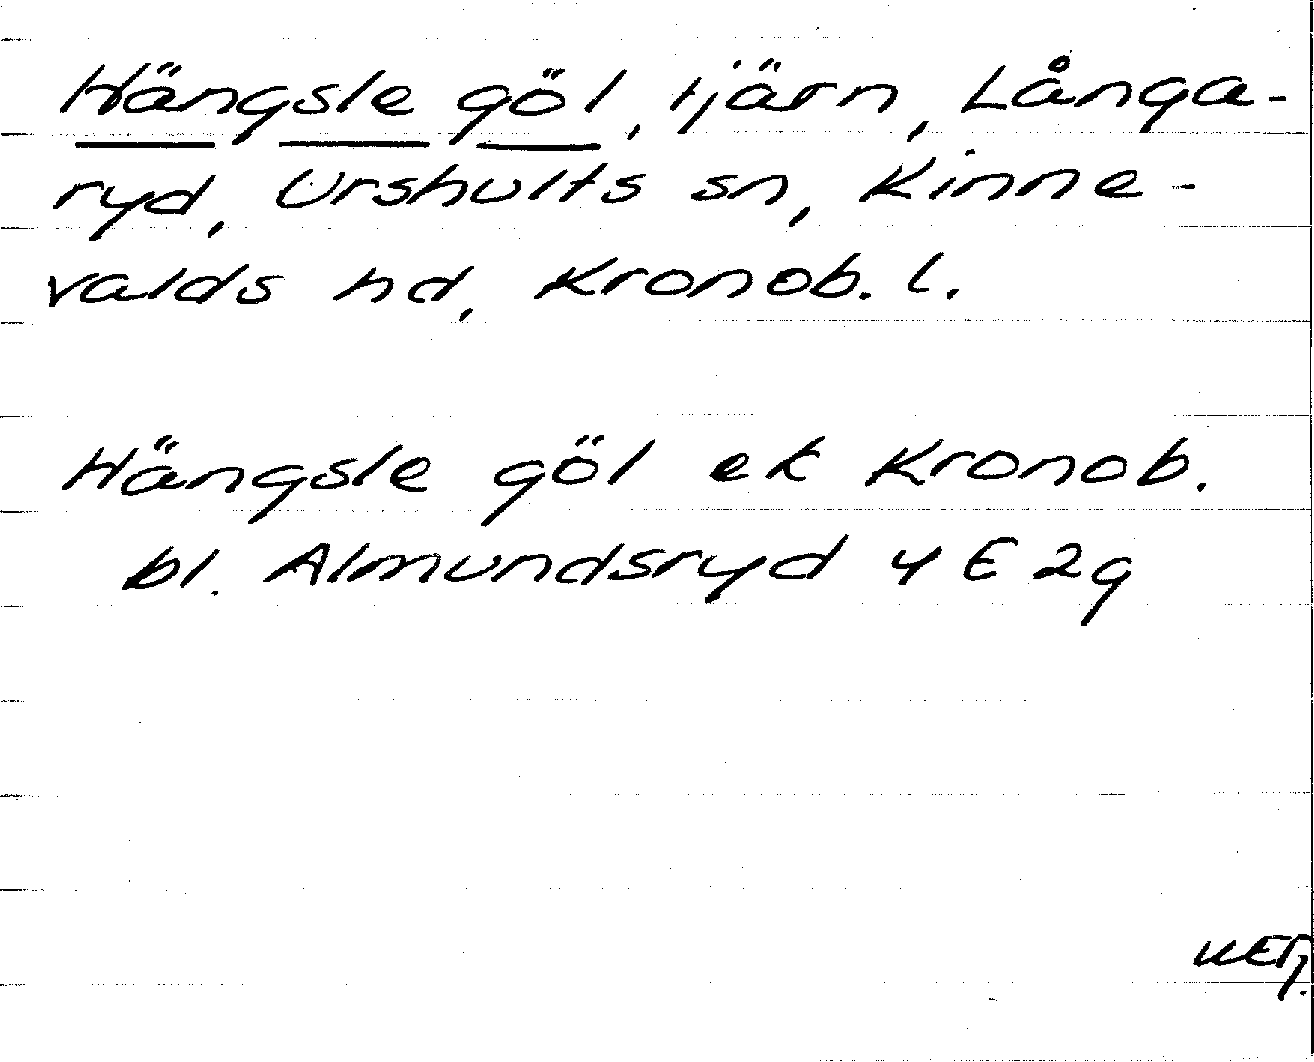 Hängsle göl, tjärn, Långa-
ryd, Urshults sn, Kinne-
valds hd, Kronob. l.
Hängsle göl ek Kronob.
bl. Almundsryd 4 E 2g